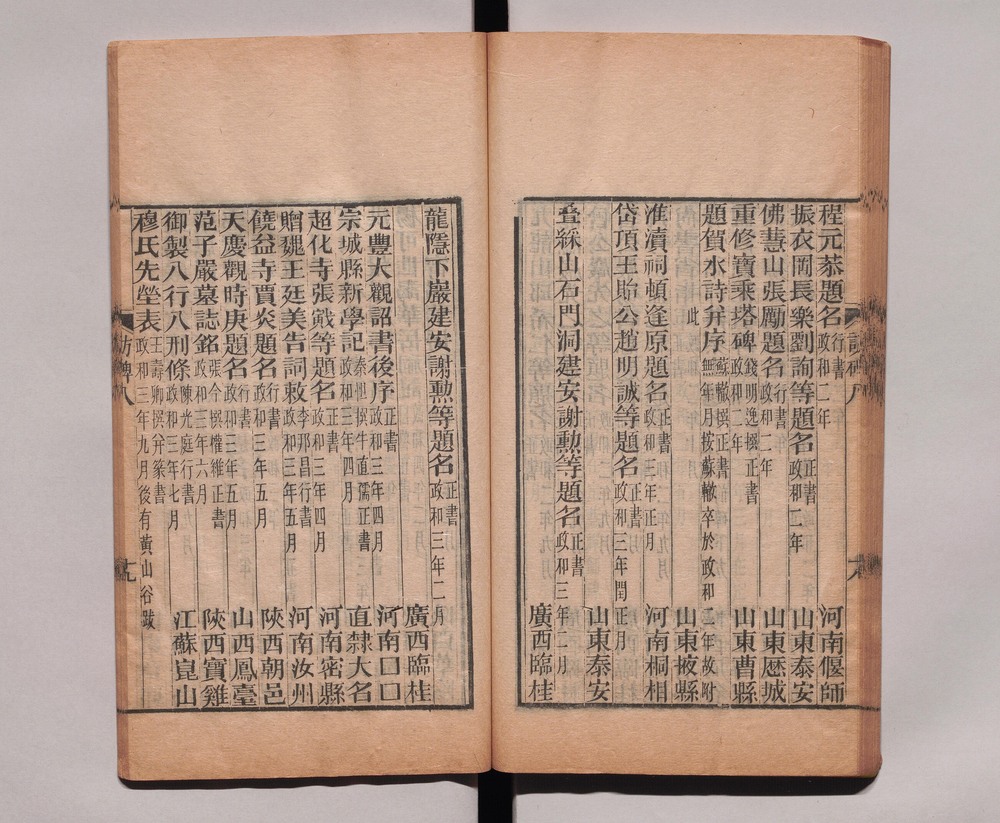 程元恭題名 行書 政和二年 河南偃師
振衣岡長樂劉詢等題名 正書 政和二年 山東泰安
佛慧山張勵題名 行書 政和二年 山東歷城
重修寶乘塔碑 錢明逸撰正書 政和二年 山東曹縣
題賀水詩并序 蘇轍撰正書 無年月按蘇轍卒於政和二年故附此 山東掖縣
淮瀆祠頓逢原題名 正書 政和三年正月 河南桐栢
岱頂王貽公趙明誠等題名 正書 政和三年閏正月 山東泰安
叠綵山石門洞建安謝勲等題名 正書 政和三年二月 廣西臨桂
龍隱下巖建安謝勲等題名 正書 政和三年二月 廣西臨桂
元豐大觀詔書後序 正書 政和三年四月 河南口口
宗城縣新學記 秦愷撰牛直孺正書 政和三年四月 直隸大名
超化寺張戩等題名 正書 政和三年四月 河南密縣
贈魏王廷美告詞敕 李邦昌行書 政和三年五月 河南汝州
饒益寺賈炎題名 行書 政和三年五月 陝西朝邑
天慶觀時庚題名 行書 政和三年五月 山西鳳臺
范子嚴墓誌銘 張今撰權維正書 政和三年六月 陝西寶雞
御製八行八刑條 陳光庭行書 政和三年七月 江蘇崑山
穆氏先塋表 王壽卿撰并篆書 政和三年九月後有黃山谷跋
訪碑八